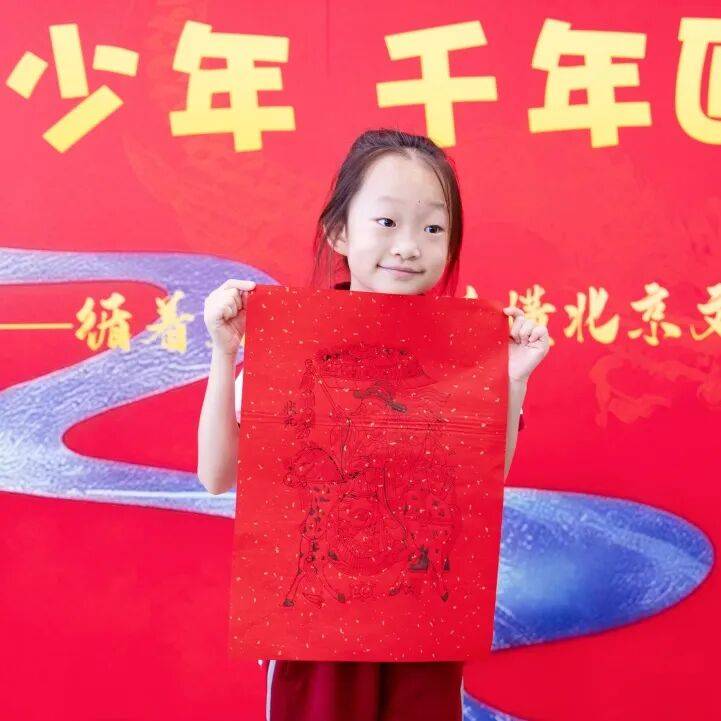 少年 千年
——循着 横北京文